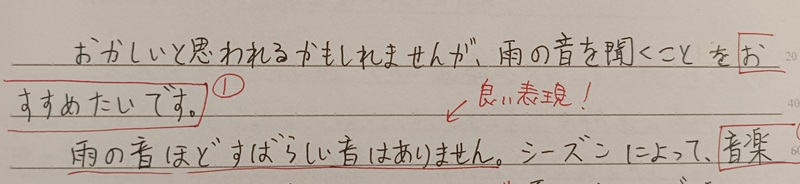 おかしいと思われるかもしれませんが、雨の音を聞くことをお
20
すすめたいです。①
良い表現!
40
雨の音ほどすばらしい音はありません。シーズンによって、音楽
60